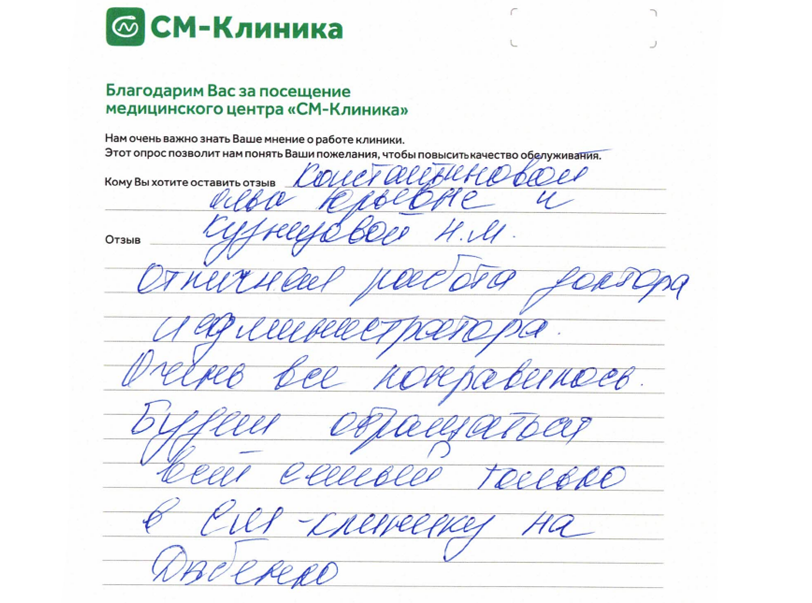 СМ-Клиника
Благодарим Вас за посещение
медицинского центра «СМ-Клиника»
Нам очень важно знать Ваше мнение о работе клиники.
Этот опрос позволит нам понять Ваши пожелания, чтобы повысить качество обслуживания.
Кому Вы хотите оставить отзыв Константиновой
Юрьевне и
Кузнецовой Н.М.
Отзыв
Отличная работа доктора
и администратора.
Очень все понравилось.
Будем обращаться
всей семьей только
в СМ-клинику на
Дыбенко